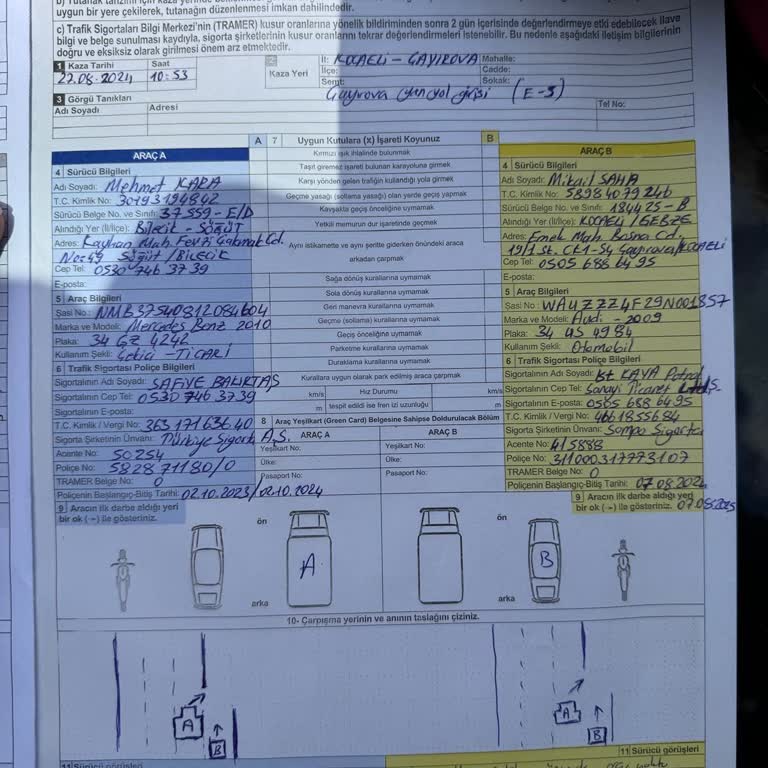 uygun bir yere çekilerek, tutanağın düzenlenmesi imkan dahilindedir.
c) Trafik Sigortaları Bilgi Merkezi'nin (TRAMER) kusur oranlarına yönelik bildiriminden sonra 2 gün içerisinde değerlendirmeye etki edebilecek ilave
bilgi ve belge sunulması kaydıyla, sigorta şirketlerinin kusur oranlarını tekrar değerlendirmeleri istenebilir. Bu nedenle aşağıdaki iletişim bilgilerinin
doğru ve eksiksiz olarak girilmesi önem arz etmektedir.
1 Kaza Tarihi Saat
22.08.2024 10:53
2 Kaza Yeri
İl: KOCAELİ - GAYIROVA Mahalle:
İlçe: Cadde:
Semt: Sokak:
Gayırova yanyol girişi (E-5)
3 Görgü Tanıkları
Adı Soyadı Adresi Tel No:
A 7 Uygun Kutulara (x) İşareti Koyunuz B
Kırmızı ışık ihlalinde bulunmak
Taşıt giremez işareti bulunan karayoluna girmek
Karşı yönden gelen trafiğin kullandığı yola girmek
Geçme yasağı (sollama yasağı) olan yerde geçiş yapmak
Kavşakta geçiş önceliğine uymamak
Yetkili memurun dur işaretinde geçmek
Aynı istikamette ve aynı şeritte giderken önündeki araca
arkadan çarpmak
Sağa dönüş kurallarına uymamak
Sola dönüş kurallarına uymamak
Geri manevra kurallarına uymamak
Geçme (sollama) kurallarına uymamak
Geçiş önceliğine uymamak
Parketme kurallarına uymamak
Duraklama kurallarına uymamak
Kurallara uygun olarak park edilmiş araca çarpmak
km/s Hız Durumu km/s
m tespit edildi ise fren izi uzunluğu m
8 Araç Yeşilkart (Green Card) Belgesine Sahipse Doldurulacak Bölüm
ARAÇ A ARAÇ B
Yeşilkart No: Yeşilkart No:
Ülke: Ülke:
Pasaport No: Pasaport No:
ARAÇ A
4 Sürücü Bilgileri
Adı Soyadı: Mehmet KARA
T.C. Kimlik No: 30193194842
Sürücü Belge No. ve Sınıfı: 37559-E/D
Alındığı Yer (İl/İlçe): Bilecik - SÖĞÜT
Adres: Kayhan Mah. Fevzi Çakmak Cd.
No:49 Söğüt/BİLECİK
Cep Tel: 0530 746 37 39
E-posta:
5 Araç Bilgileri
Şasi No: NMB37540812084604
Marka ve Modeli: Mercedes Benz 2010
Plaka: 34 GZ 4242
Kullanım Şekli: Çekici - TİCARİ
6 Trafik Sigortası Poliçe Bilgileri
Sigortalının Adı Soyadı: SAFİYE BALKITAŞ
Sigortalının Cep Tel: 0530 746 37 39
Sigortalının E-posta:
T.C. Kimlik / Vergi No: 363 171 636 40
Sigorta Şirketinin Ünvanı: Türkiye Sigorta A.Ş.
Acente No: 50254
Poliçe No: 582871180/0
TRAMER Belge No: 0
Poliçenin Başlangıç-Bitiş Tarihi: 02.10.2023/02.10.2024
9 Aracın ilk darbe aldığı yeri
bir ok (→) ile gösteriniz.
ARAÇ B
4 Sürücü Bilgileri
Adı Soyadı: Mikail SAHA
T.C. Kimlik No: 58984079246
Sürücü Belge No. ve Sınıfı: 184425-B
Alındığı Yer (İl/İlçe): KOCAELİ / GEBZE
Adres: Emek Mah. Bosna Cd.
Gayırova/KOCAELİ
Cep Tel: 0505 688 64 95
E-posta:
5 Araç Bilgileri
Şasi No: WAUZZZ4F29N001857
Marka ve Modeli: Audi - 2009
Plaka: 34 US 4984
Kullanım Şekli: Otomobil
6 Trafik Sigortası Poliçe Bilgileri
Sigortalının Adı Soyadı: KAYA Petrol
Sigortalının Cep Tel: Sanayi Ticaret
Sigortalının E-posta: 0505 688 6495
T.C. Kimlik / Vergi No: 4661855684
Sigorta Şirketinin Ünvanı: Sompo Sigorta
Acente No: 415888
Poliçe No: 311000317773107
TRAMER Belge No: 0
Poliçenin Başlangıç-Bitiş Tarihi: 07.08.2024
9 Aracın ilk darbe aldığı yeri
bir ok (→) ile gösteriniz. 07.08.2025
ön ön
A B
arka arka
10- Çarpışma yerinin ve anının taslağını çiziniz.
A B
A B
11 Sürücü görüşleri 11 Sürücü görüşleri